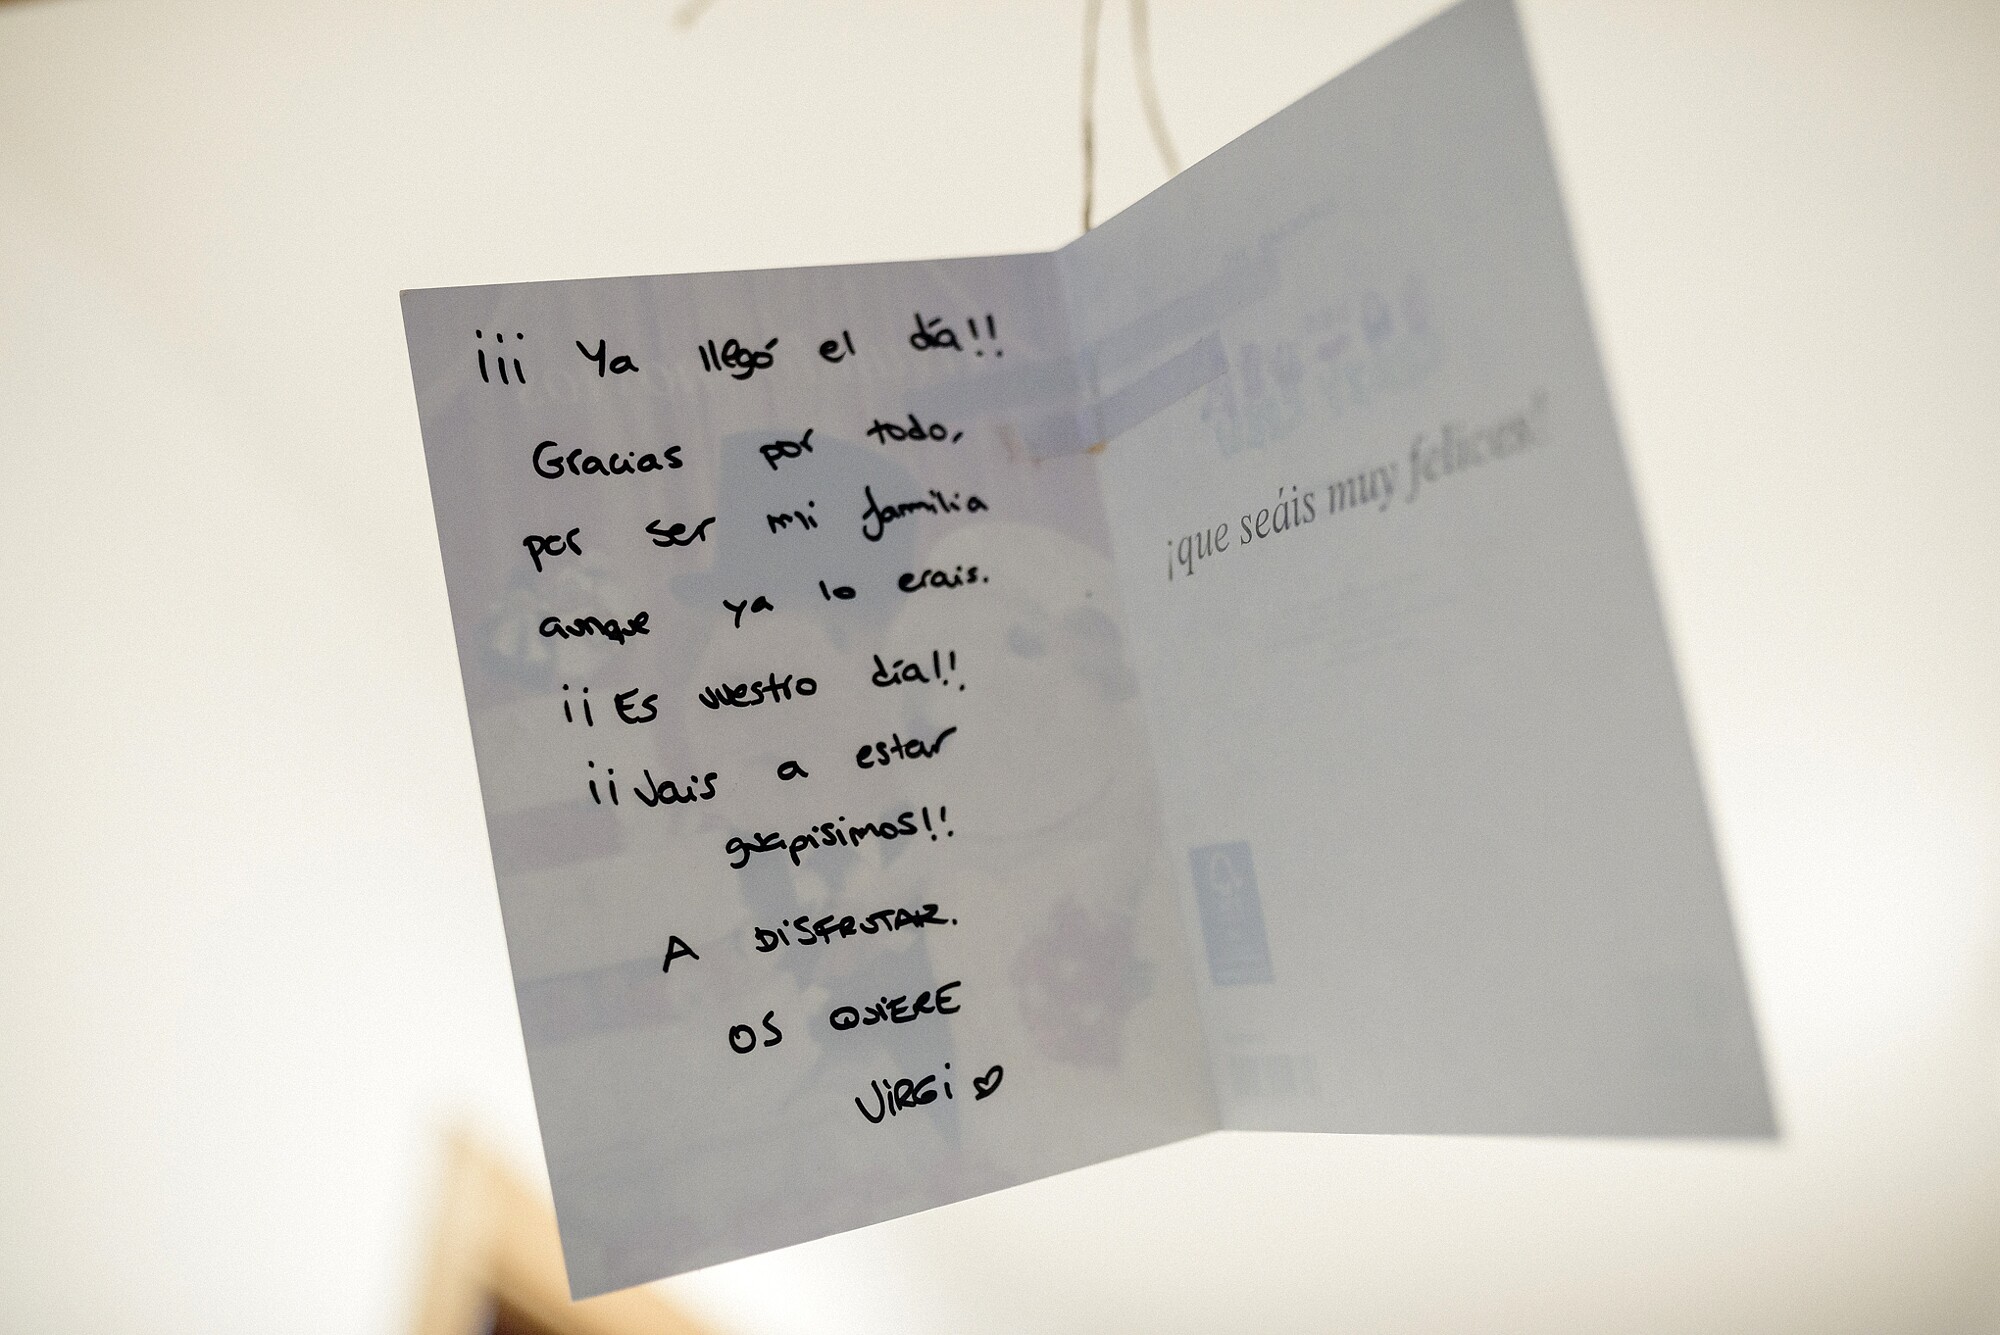 ¡¡¡ Ya llegó el día!!
Gracias por todo,
por ser mi familia
aunque ya lo erais.
¡¡Es vuestro día!!
¡¡Vais a estar
guapisimos!!
A DISFRUTAR.
OS QUIERE
VIRGI ♡
¡que seáis muy felices!